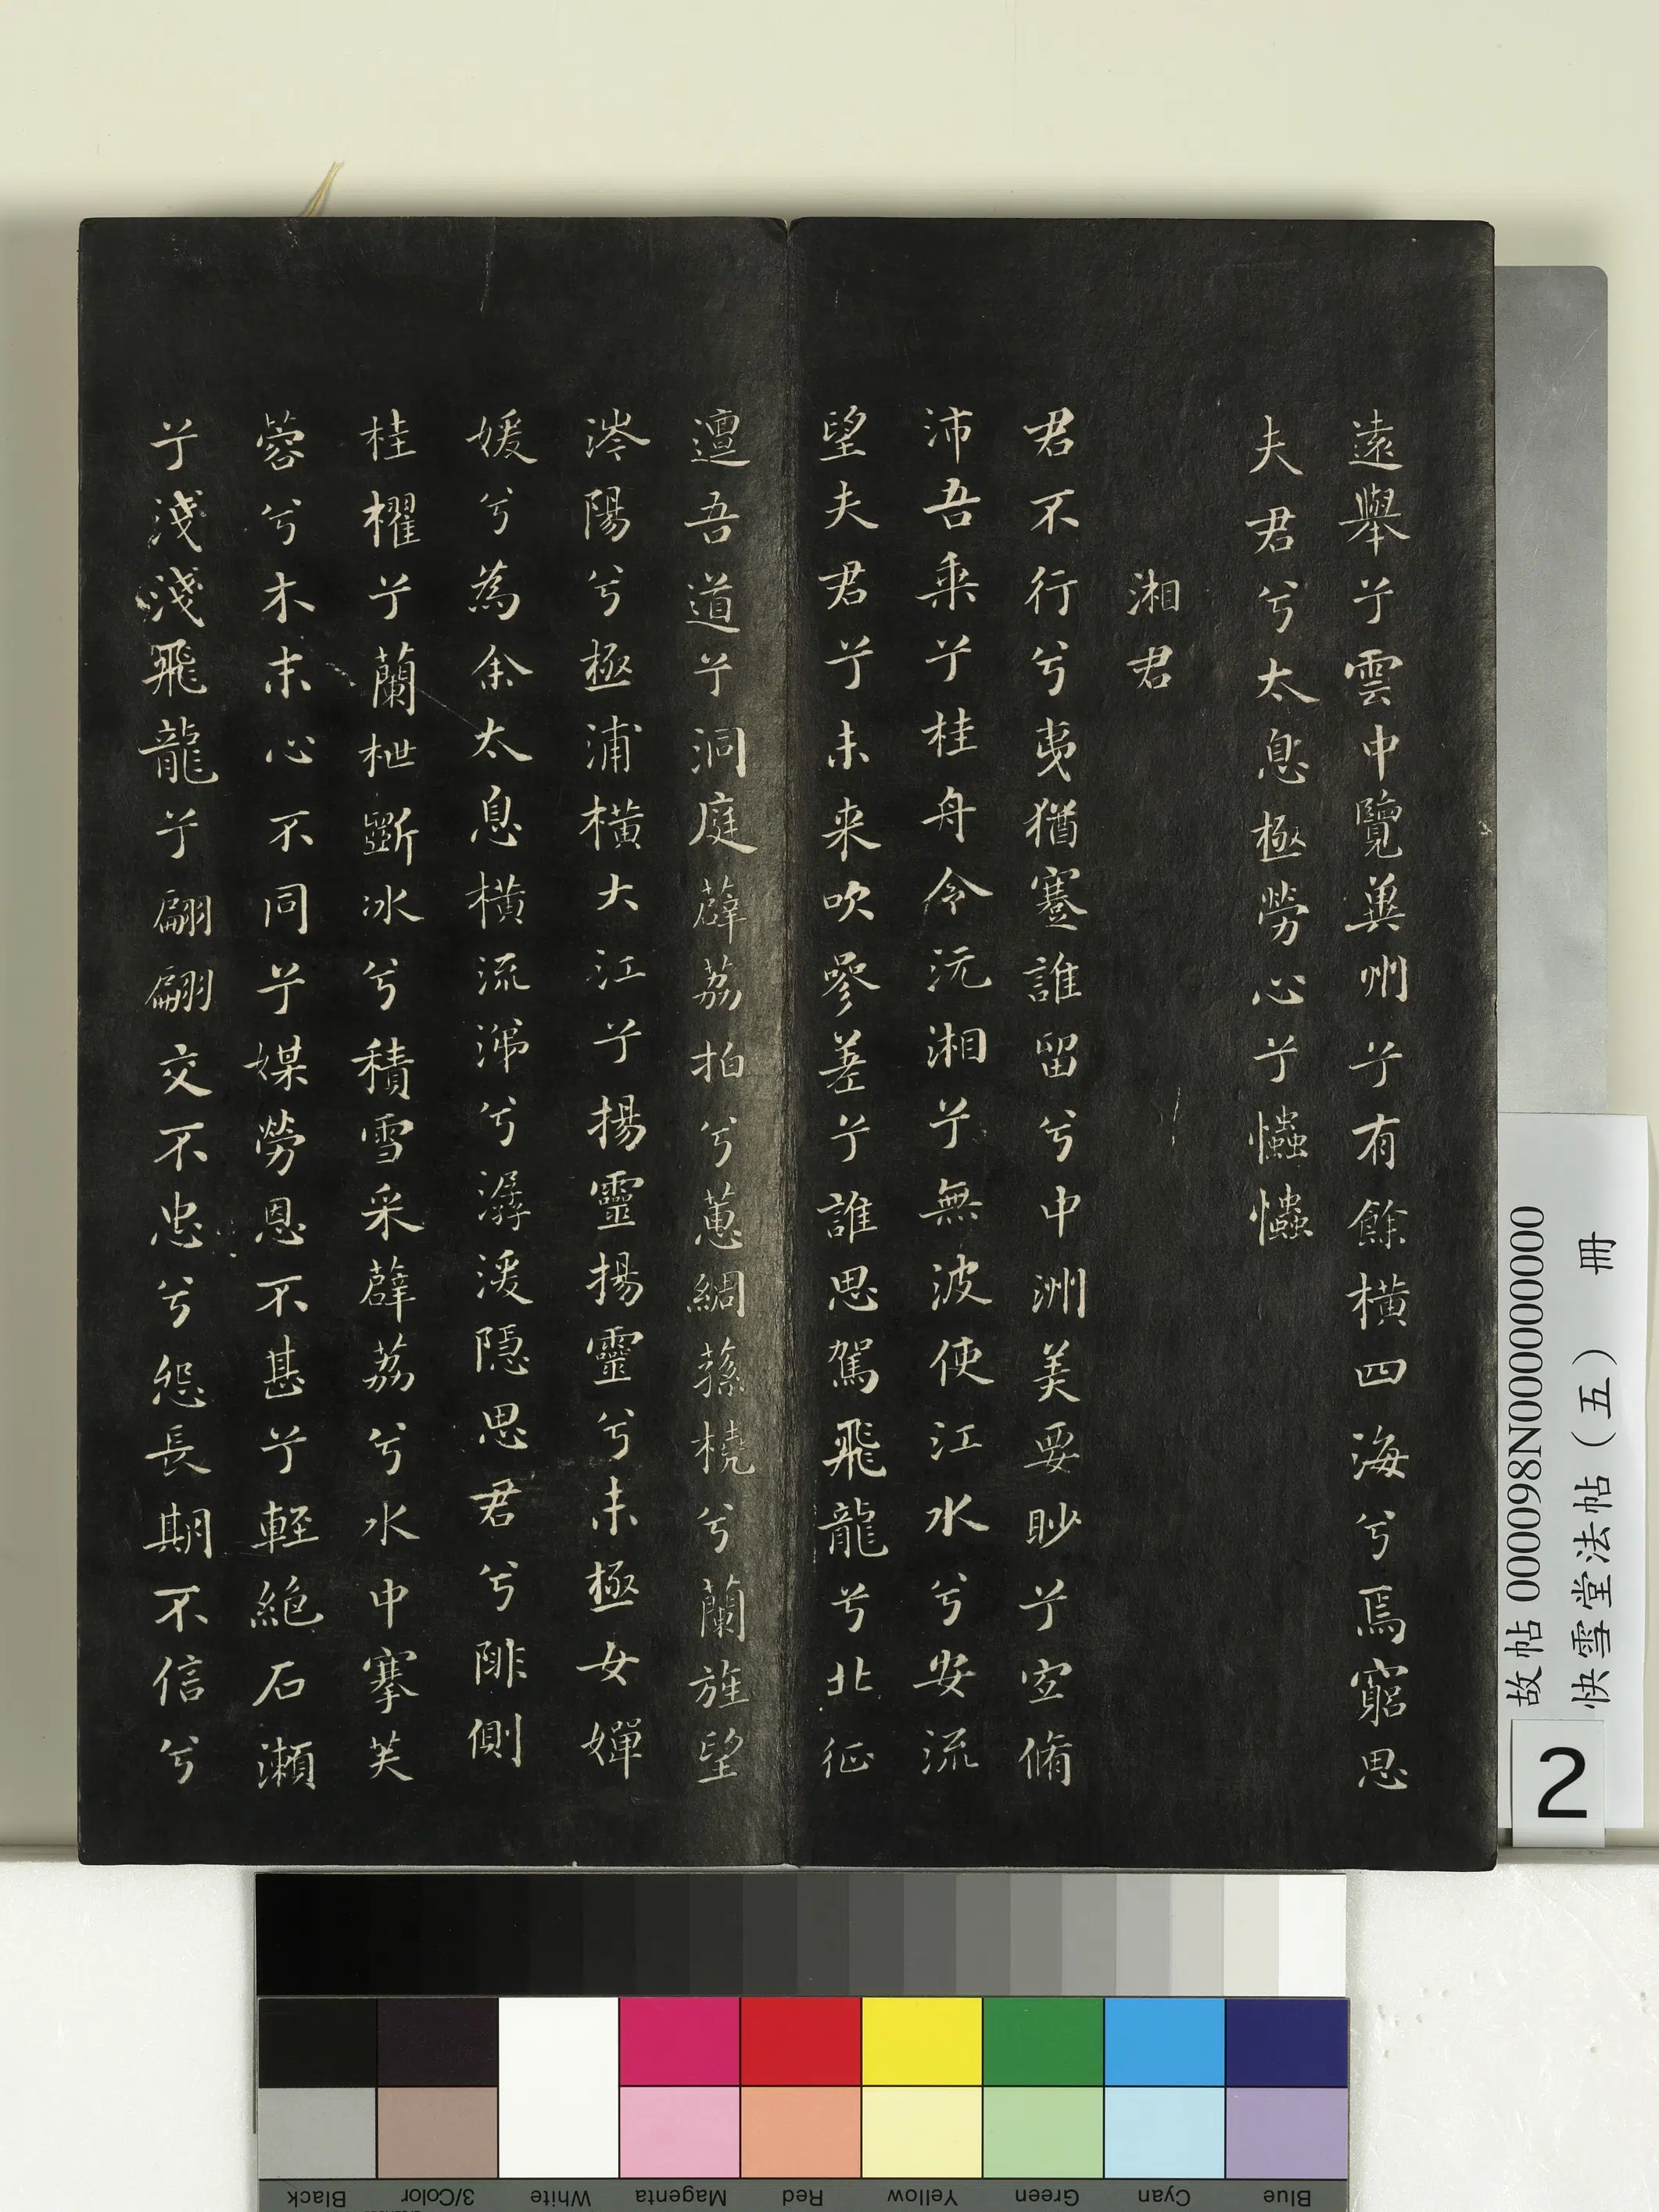 遠舉兮雲中覽兾州兮有餘橫四海兮焉窮思
夫君兮太息極勞心兮𢥞𢥞
湘君
君不行兮夷猶蹇誰留兮中洲美要眇兮宜脩
沛吾乘兮桂舟令沅湘兮無波使江水兮安流
望夫君兮未来吹參差兮誰思駕飛龍兮北征
邅吾道兮洞庭薜荔拍兮蕙綢蓀橈兮蘭旌望
涔陽兮極浦橫大江兮揚靈揚靈兮未極女嬋
媛兮為余太息橫流涕兮潺湲隱思君兮陫側
桂櫂兮蘭枻斲冰兮積雪采薜荔兮水中搴芙
蓉兮木末心不同兮媒勞恩不甚兮輕絕石瀨
兮淺淺飛龍兮翩翩交不忠兮怨長期不信兮
故帖 000098N000000000
快雪堂法帖（五） 冊
2
Black 3/Color White Magenta Red Yellow Green Cyan Blue